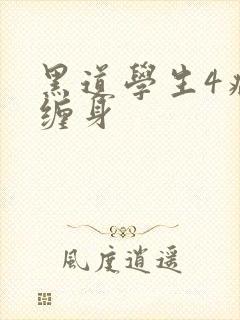 黑道學生4病
缠身
風度逍遥